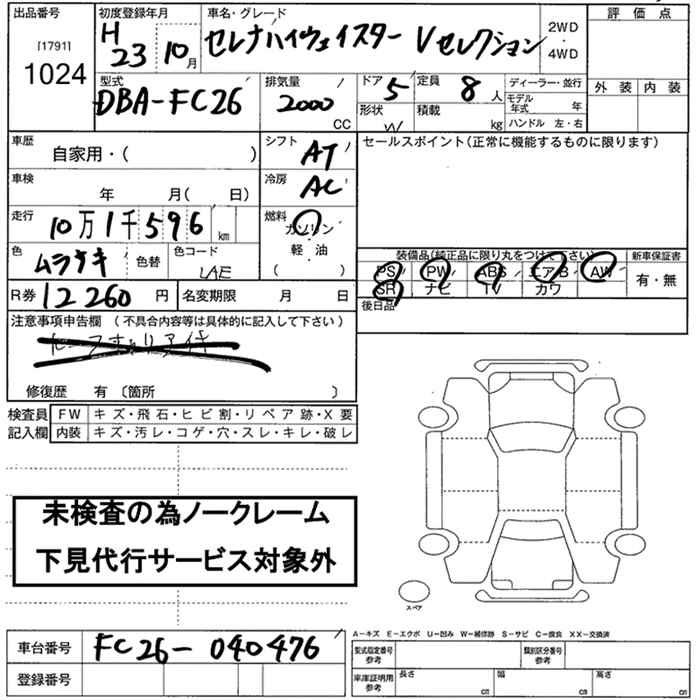 出品番号 初度登録年月 車名・グレード 評価点
[1791] H セレナハイウェイスター Vセレクション 2WD
1024 23 10月 ・4WD
型式 排気量 ドア 5 定員 8人 ディーラー・並行 外装 内装
DBA-FC26 2000 CC 形状 W 積載 kg モデル年式 年
ハンドル 左・右
車歴 シフト AT セールスポイント(正常に機能するものに限ります)
自家用・( )
車検 冷房 AC
年 月( 日)
走行 10万1千596km 燃料 ガソリン
・
軽・油
( )
色 ムラサキ 色替 色コード LAE
装備品(純正品に限り丸をつけて下さい) 新車保証書
PS PW ABS エアB AW 有・無
SR ナビ TV カワ
R券 12260円 名変期限 月 日 後日品
注意事項申告欄 (不具合内容等は具体的に記入して下さい)
修復歴 有 〔箇所 〕
検査員 FW キズ・飛石・ヒビ割・リペア跡・X要
記入欄 内装 キズ・汚レ・コゲ・穴・スレ・キレ・破レ
未検査の為ノークレーム
下見代行サービス対象外
スペア
A-キズ E-エクボ U-凹み W-補修跡 S-サビ C-腐食 XX-交換済
車台番号 FC26-040476 型式指定番号 参考 類別区分番号 参考
登録番号 車庫証明用 参考 長さ cm 幅 cm 高さ cm